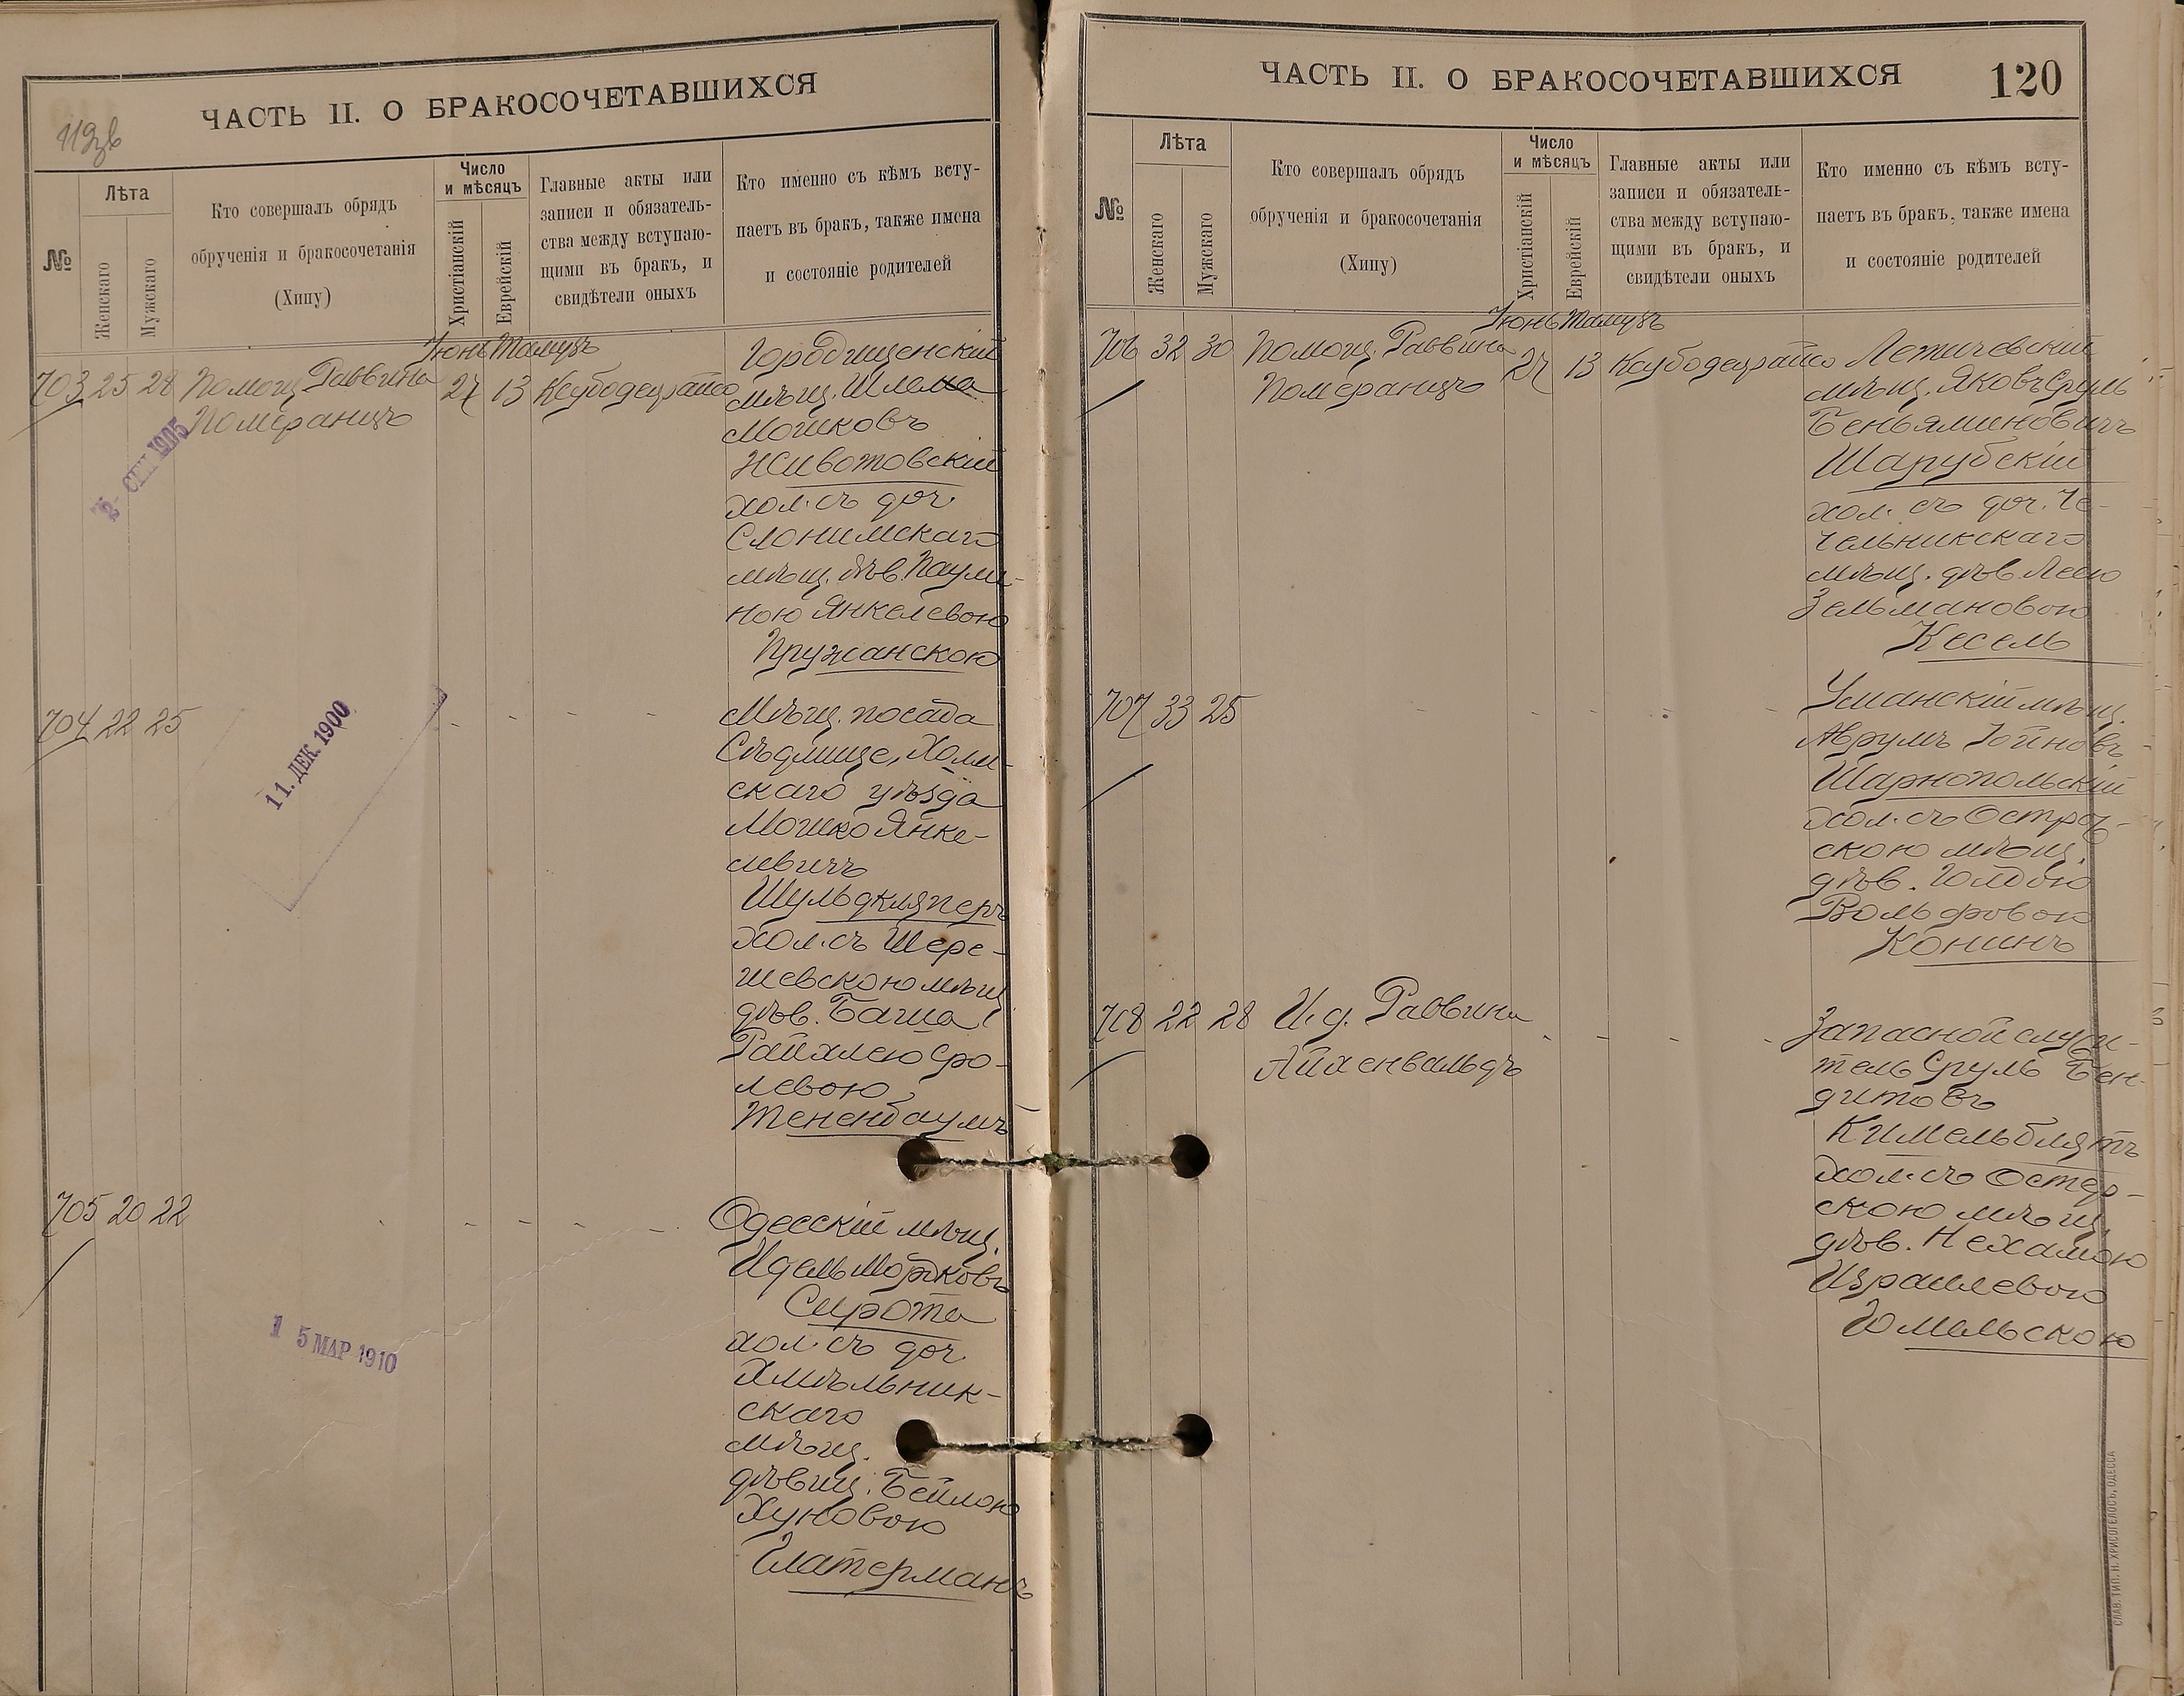 119зв
ЧАСТЬ II. О БРАКОСОЧЕТАВШИХСЯ
№
Лѣта
Женскаго
Мужскаго
Кто совершалъ обрядъ
обрученія и бракосочетанія
(Хипу)
Число
и мѣсяцъ
Христіанскій
Еврейскій
Главные акты или
записи и обязатель-
ства между вступаю-
щими въ бракъ, и
свидѣтели оныхъ
Кто именно съ кѣмъ всту-
паетъ въ бракъ, также имена
и состояніе родителей
Іюнь Тамузъ
703 25 28 Помощ. Раввина 27 13
Померанцъ
2- СЕН 1905
Городищенскій
мѣщ. Шлема
Мошковъ
Животовскій
хол. съ доч.
Слонимскаго
мѣщ. дѣв. Паули-
ною Янкелевою
Пружанскою
704 22 25 - - - -
11. ДЕК. 1900
Мѣщ. посада
Сѣдлище, Холм-
скаго уѣзда
Мошко Янке-
левичъ
Шульдкляперъ
хол. съ Шере-
шевскою мѣщ.
дѣв. Баша
Райхлею Сро-
левою
Тененбаумъ
705 20 22 - - - -
1 5 МАР 1910
Одесскій мѣщ.
Идель Мордковъ
Сирота
хол. съ доч.
Хмѣльник-
скаго
мѣщ.
дѣвиц. Бейлою
Хуновою
Глатерманъ
ЧАСТЬ II. О БРАКОСОЧЕТАВШИХСЯ
120
№
Лѣта
Женскаго
Мужскаго
Кто совершалъ обрядъ
обрученія и бракосочетанія
(Хипу)
Число
и мѣсяцъ
Христіанскій
Еврейскій
Главные акты или
записи и обязатель-
ства между вступаю-
щими въ бракъ, и
свидѣтели оныхъ
Кто именно съ кѣмъ всту-
паетъ въ бракъ, также имена
и состояніе родителей
Іюнь Тамузъ
706 32 30 Помощ. Раввина 27 13
Померанцъ
Летичевскій
мѣщ. Яковъ Сруль
Беньяминовичъ
Шарубскій
хол. съ доч. Че-
чельникскаго
мѣщ. дѣв. Леею
Зельмановою
Кесель
707 33 25 - - - -
Уманскій мѣщ.
Аврумъ Іойновъ
Шарнопольскій
хол. съ Острож-
скою мѣщ.
дѣв. Голдою
Вольфовою
Конинъ
708 22 28 И. д. Раввина
Айхенвальдъ - - - -
Запасной служи-
тель Сруль Бен-
дитовъ
Кимельблятъ
хол. съ Остер-
скою мѣщ.
дѣв. Нехамою
Израилевою
Гомельскою
СЛАВ. ТИП. Н. ХРИСОГЕЛОСЪ, ОДЕССА